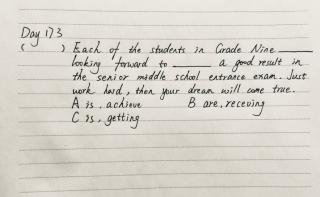 Day 173
( ) Each of the students in Grade Nine ______
looking forward to ______ a good result in
the senior middle school entrance exam. Just
work hard, then your dream will come true.
A is, achieve B are, receving
C is, getting